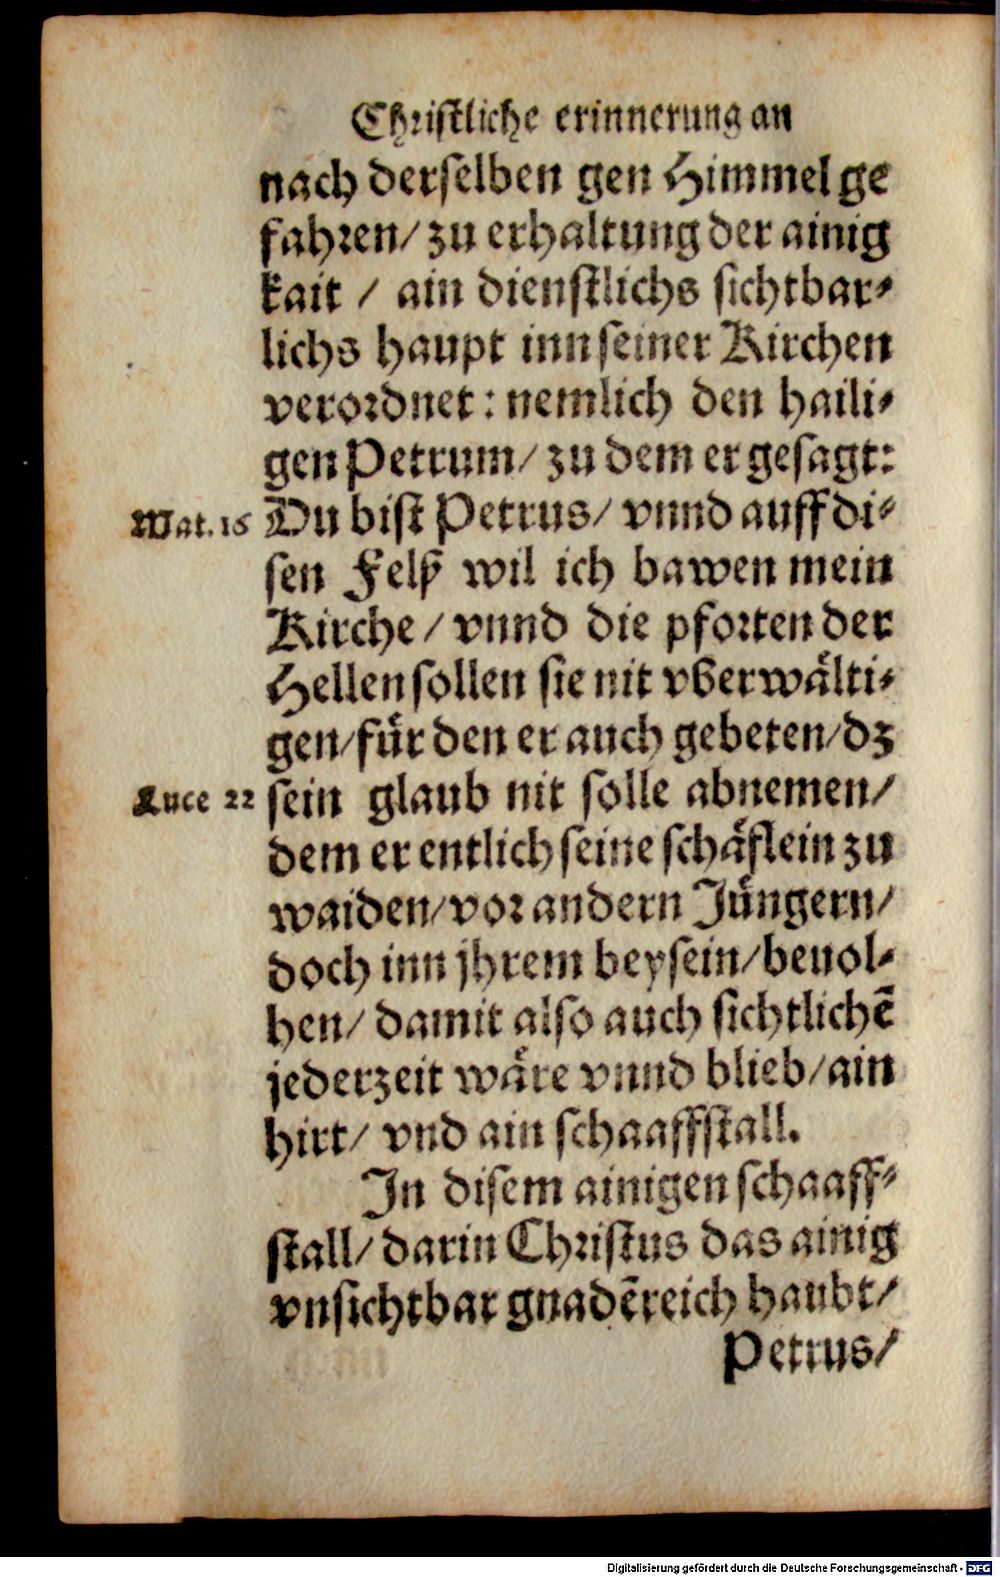 Christliche erinnerung an
nach derselben gen Himmel ge
fahren/ zu erhaltung der ainig
kait / ain dienstlichs sichtbar⸗
lichs haupt inn seiner Kirchen
verordnet: nemlich den haili⸗
gen Petrum/ zu dem er gesagt:
Mat. 16 Du bist Petrus/ vnnd auff di⸗
sen Felß wil ich bawen mein
Kirche/ vnnd die pforten der
Hellen sollen sie nit vberwaͤlti⸗
gen/ fuͤr den er auch gebeten/ dz
Luce 22 sein glaub nit solle abnemen/
dem er entlich seine schaͤflein zu
waiden/ vor andern Juͤngern/
doch inn jhrem beysein/ beuol⸗
hen/ damit also auch sichtlichẽ
jederzeit waͤre vnnd blieb/ ain
hirt/ vnd ain schaaffstall.
In disem ainigen schaaff⸗
stall/ darin Christus das ainig
vnsichtbar gnadẽreich haubt/
Petrus/
Digitalisierung gefördert durch die Deutsche Forschungsgemeinschaft - DFG